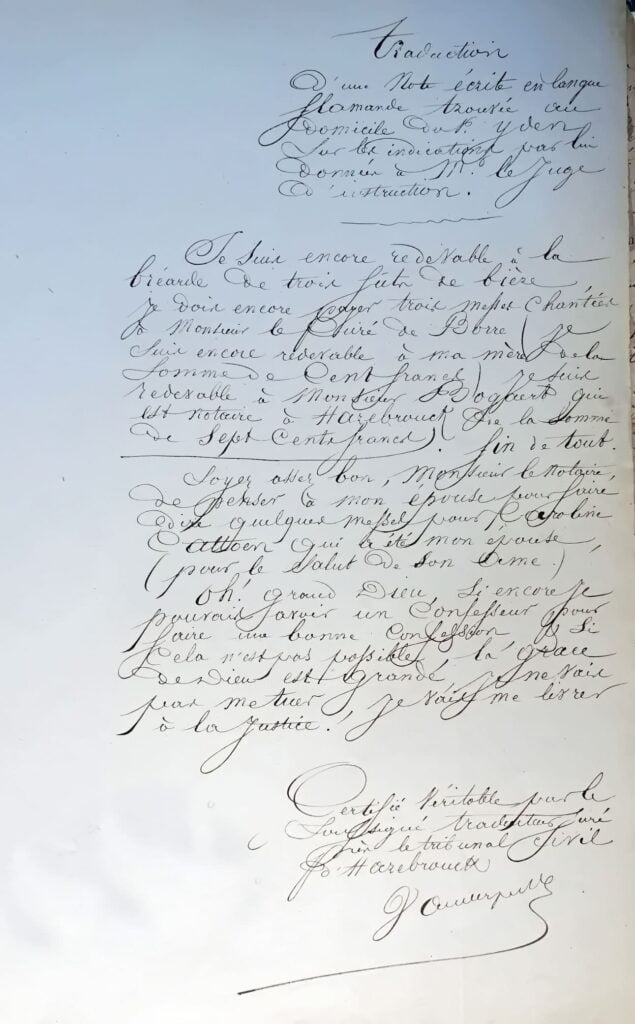 Traduction
D'une Note écrite en langue
flamande trouvée au
domicile du Sr. Yden
Sur les indications par lui
Données à Mr. le Juge
D'instruction.
Je suis encore redevable à la
bréarde de trois futs de bière
je dois encore payer trois messes chantées
à Monsieur le Curé de Borre (je
suis encore redevable à ma mère de la
somme de Cent francs) je suis
redevable à Monsieur Bogaert qui
est notaire à Hazebrouck (De la somme
de Sept Cents francs). fin de tout.
Soyez assez bon, Monsieur le notaire,
de penser à mon épouse pour faire
dire quelques messes pour Caroline
Cattoen qui a été mon épouse,
(pour le Salut de Son âme.)
Oh! grand Dieu, si encore je
pouvais avoir un Confesseur pour
faire une bonne Confession, Si
Cela n'est pas possible, la grace
de Dieu est grande, je ne vais
pas me tuer, je vais me livrer
à la Justice!
Certifié Véritable par le
Soussigné traducteur juré
près le tribunal Civil
D'Hazebrouck